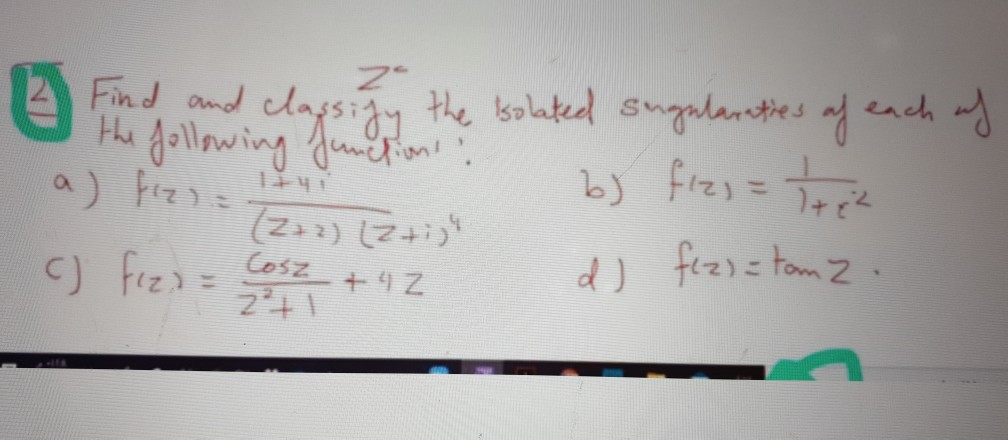 Z
2 Find and classify the isolated singularities of each of
the following functions:
a) f(z) = 1+4i / (z+2) (z+i)⁴
b) f(z) = 1 / 1+
c) f(z) = cosz / z²+1 + 4z
d) f(z) = tan z.